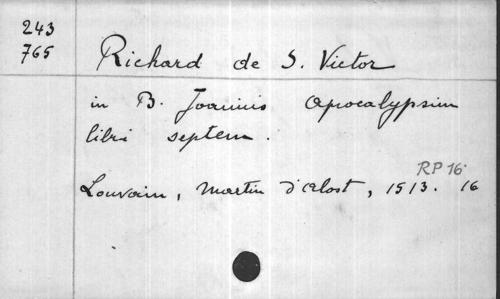 243
765
Richard de S. Victor
in B. Joannis Apocalypsim
libri septem.
RP 16
Louvain, Martin d'Alost, 1513. 16